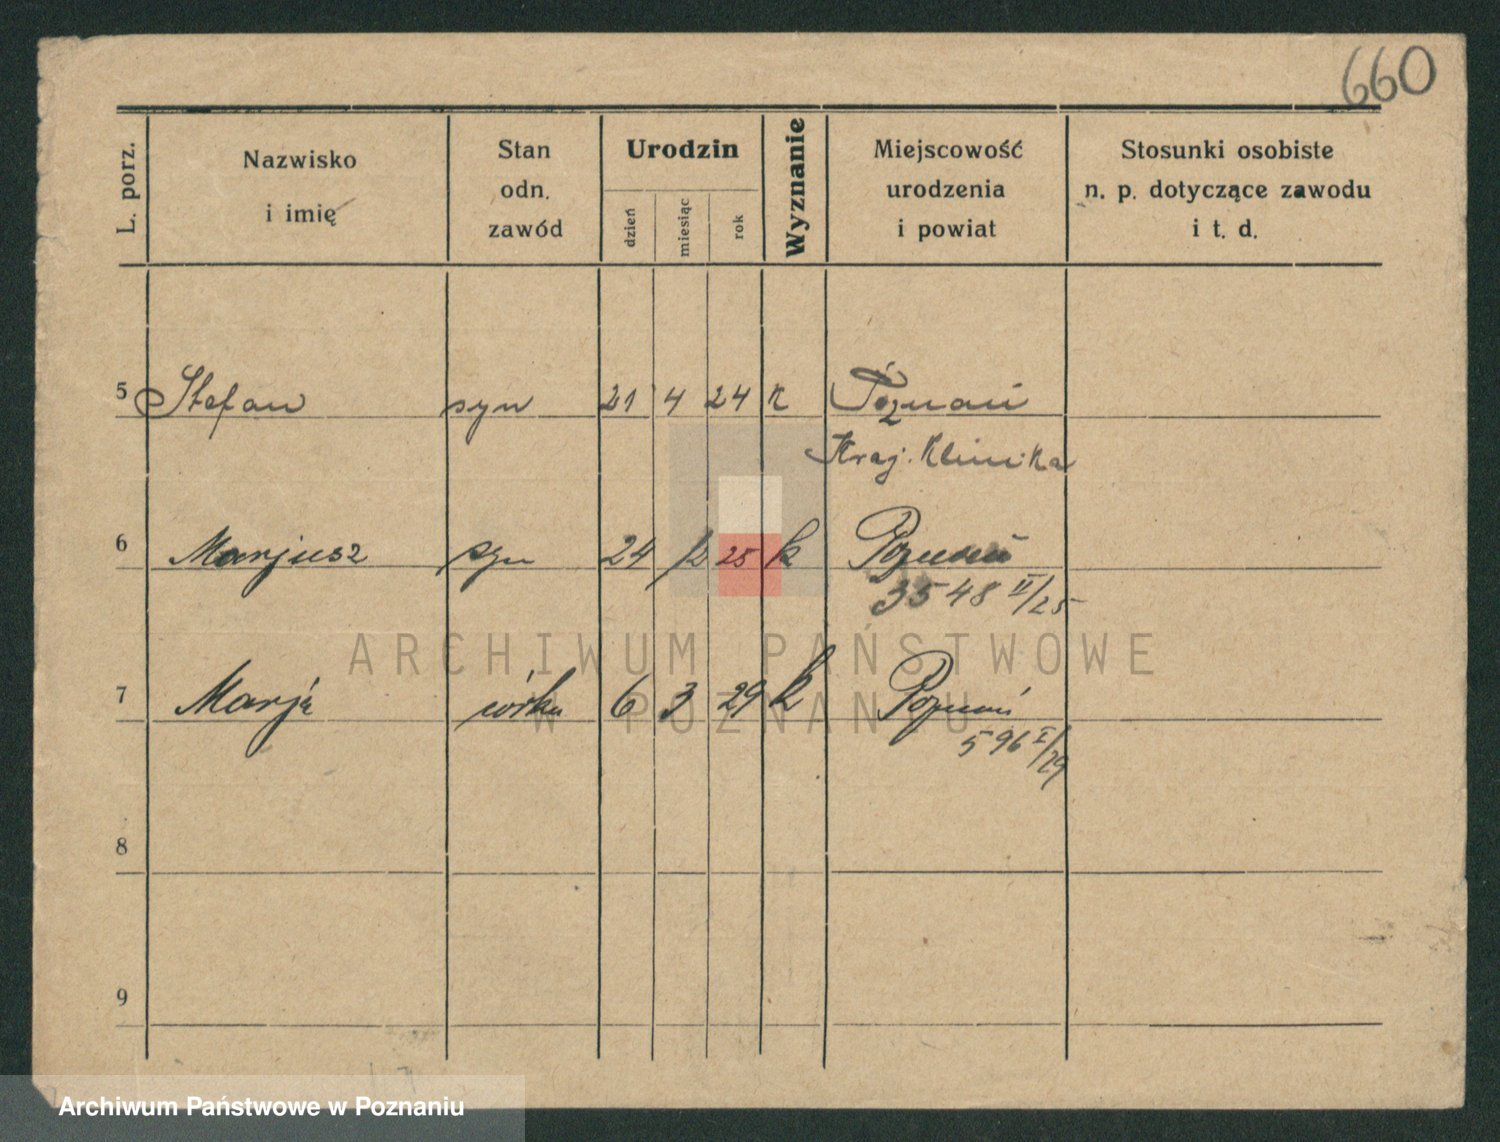 660
L. porz.
Nazwisko
i imię
Stan
odn.
zawód
Urodzin
dzień
miesiąc
rok
Wyznanie
Miejscowość
urodzenia
i powiat
Stosunki osobiste
n. p. dotyczące zawodu
i t. d.
5 Stefan syn 21 4 24 k Poznań
Kraj. Klinika
6 Marjusz syn 24 12 25 k Poznań
3548 II/25
7 Marja córka 6 3 29 k Poznań
596 I/29
8
9
ARCHIWUM PAŃSTWOWE
W POZNANIU
Archiwum Państwowe w Poznaniu